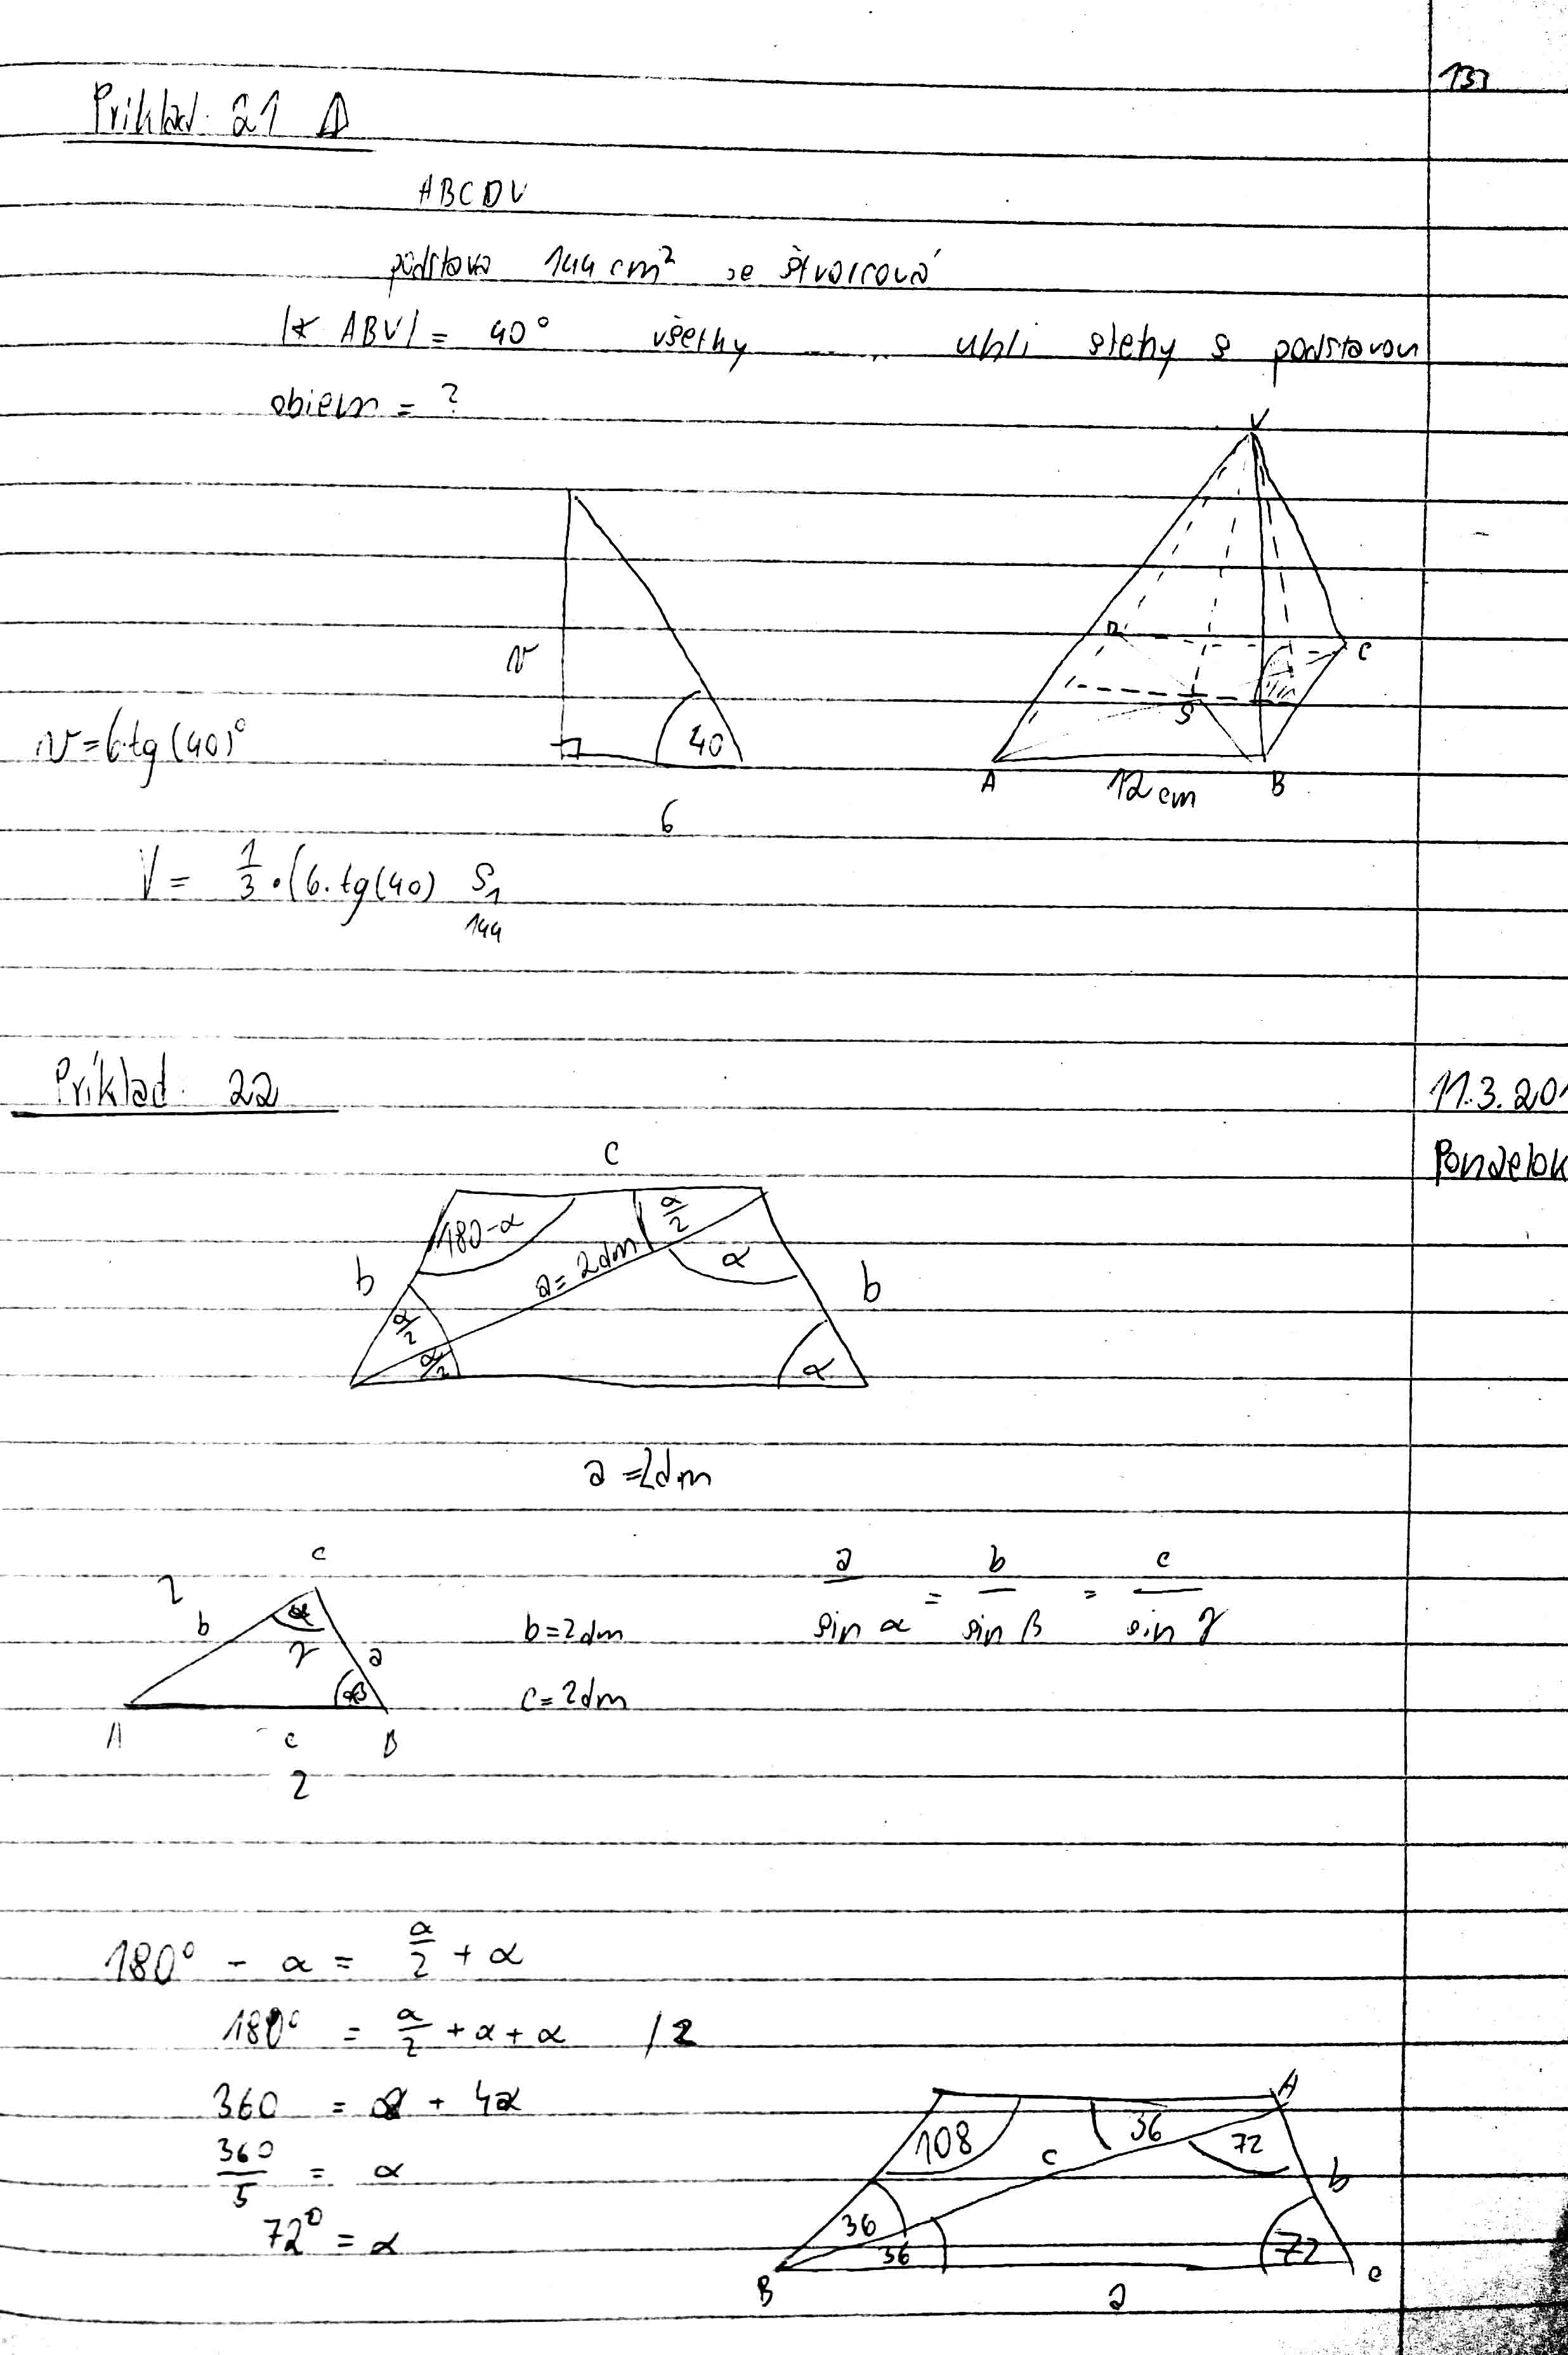 133
Príklad: 21 Δ
ABCDV
podstava 144 cm² je štvorcová
|∢ ABV| = 40° všetky .... uhli steny s podstavou
objem = ?
V
D
C
v
S
v = 6.tg(40)°
40
A
12 cm
B
6
V = 1/3 · (6.tg(40) S₁
144
Príklad: 22
11.3.201
Pondelok
c
180-α
α/2
a = 2dm
α
b
b
α/2
α/2
α
a = 2dm
c
2
b
α
γ
a
β
A
c
B
2
b = 2dm
c = 2dm
a/sin α = b/sin β = c/sin γ
180° - α = α/2 + α
180° = α/2 + α + α /2
360 = α + 4α
360/5 = α
72° = α
A
108
36
c
72
b
36
36
72
B
a
c